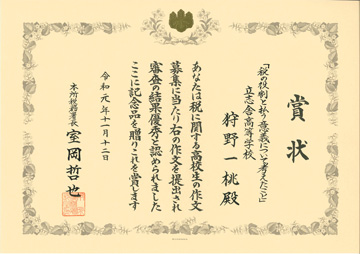 賞状
「税の役割と払う意義について考えたこと」
立志舎高等学校
狩野一桃殿
あなたは税に関する高校生の作文
募集に当たり右の作文を提出され
審査の結果優秀と認められました
ここに記念品を贈りこれを賞します
令和元年十一月十二日
本所税務署長
室岡哲也